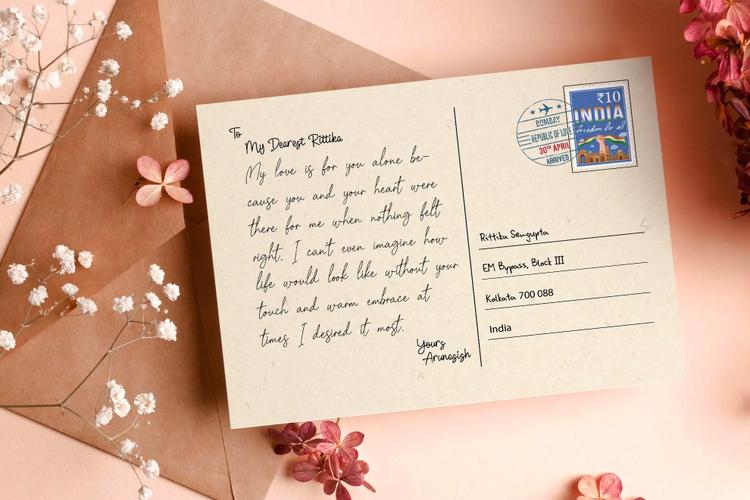 To
My Dearest Rittika
My love is for you alone be-
cause you and your heart were
there for me when nothing felt
right. I can't even imagine how
life would look like without your
touch and warm embrace at
times I desired it most.
Yours
Arunasish
BOMBAY
REPUBLIC OF LOVE
30TH APRIL
ARRIVED
₹10
INDIA
freedom for all
Rittika Sengupta
EM Bypass, Block III
Kolkata 700 088
India